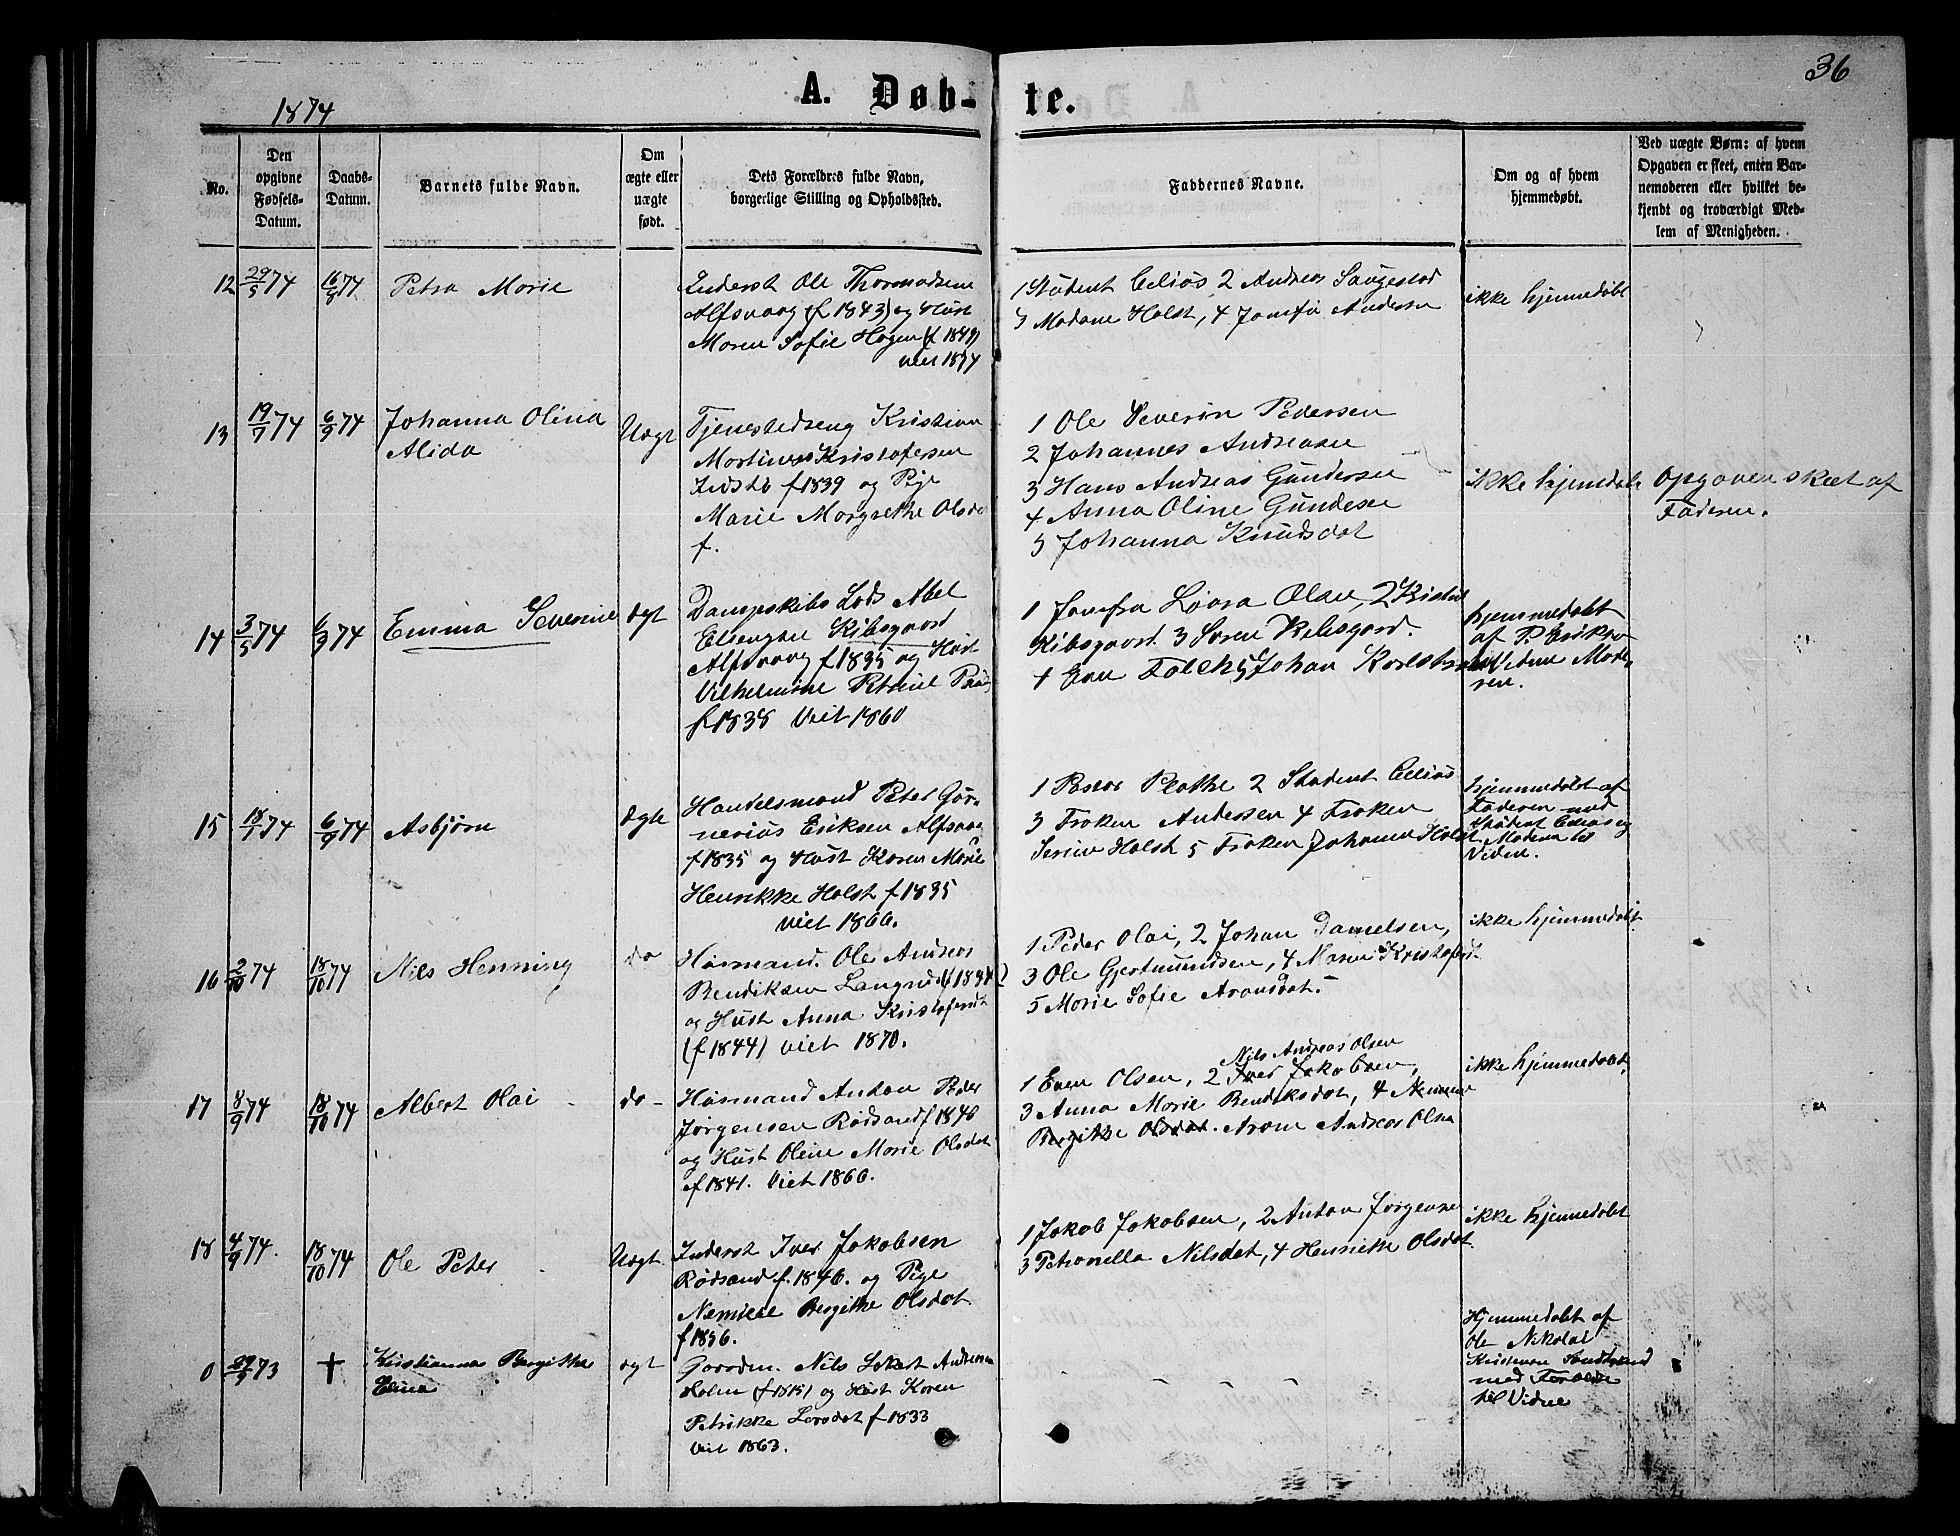 36
1874
A. Døb-te.
No.
Den opgivne Fødsels-Datum.
Daabs-Datum.
Barnets fulde Navn.
Om ægte eller uægte født.
Dets Forældres fulde Navn, borgerlige Stilling og Opholdssted.
Faddernes Navne.
Om og af hvem hjemmedøbt.
Ved uægte Børn: af hvem Opgaven er skeet, enten Barnemoderen eller hvilket bekjendt og troværdigt Medlem af Menigheden.
12 29/5 74 16/8 74 Petra Marie
Inderst Ole Thormodsen
Alfsvaag (f 1843) og Hust
Maren Sofie Hagen (f 1849)
viet 1874
1 Student Celius 2 Andreas Saugestad
3 Madame Holst, 4 Jomfru Andersen
ikke hjemmedøbt
13 19/7 74 6/9 74 Johanna Olina
Alida
Uægt
Tjenestedreng Kristian
Martinus Kristofersen
f 1839 og Pige
Marie Margrethe Olsdat
f.
1 Ole Severin Pedersen
2 Johannes Andreasen
3 Hans Andreas Gundersen
4 Anna Oline Gundersen
5 Johanna Knudsdat
ikke hjemdøbt
Opgaven skeet af
Faderen.
14 3/5 74 6/9 74 Emma Severine
ægt
Dampskibs Lods Abel
Kibsgaard
Alfsvaag f 1835 og Hust
Vilhelmine
f 1838 Viet 1860
1 Jomfru Lovra Olsen, 2 Kristen
Kibsgaard 3 Soren Kibsgard.
4 Even Falch 5 Johan
hjemmedøbt
af P. Eriksen
Vidne Mads-
sen.
15 18/1 74 6/9 74 Asbjørn
ægte
Handelsmand Peter Gør-
nerius Eriksen Alfsvaag
f 1835 og Hust Karen Marie
Henrikke Holst f 1835
viet 1866.
1 Pastor Plathe 2 Student Celius
3 Frøken Andersen 4 Frøken
Serine Holst 5 Frøken Johanna Holst
hjemmedøbt af
Faderen med
Student Celius og
Vidne.
16 2/10 74 18/10 74 Nils Henning
do
Husmand. Ole Andreas
Bendiksen Langnes (f 1848)
og Hust Anna Kristofersdt
(f 1844) viet 1870.
1 Peder Olai, 2 Johan Danielsen,
3 Ole Gjertmundsen, 4 Maren Kristofersd.
5 Marie Sofie Aronsdat.
ikke hjemmedøbt
17 8/9 74 18/10 74 Albert Olai
do
Husmand Anton Peder
Jørgensen Rødsand f 1840
og Hust Oline Marie Olsdat
f 1841. Viet 1866.
Nils Andreas Olsen
1 Even Olsen, 2 Iver Jakobsen,
3 Anna Marie Bendiksdat, 4
Bergithe Olsdat. Aron Andreas Olsen
ikke hjemmedøbt.
18 4/9 74. 18/10 74 Ole Peter
Uægt.
Inderst Iver Jakobsen
Rødsand f. 1846. og Pige
Bergithe Olsdat
f 1856.
1 Jakob Jakobsen, 2 Anton Jørgensen
3 Petronella Nilsdat, 4 Henrikke Olsdat.
ikke hjemmedøbt
0 73 † Kristianna Bergithe
Elina
ægt
Gaardm. Nils Andersen
Holm (f 1815) og Hust Karen
Petrikke Larsdat f 1833
Viet 1863.
Hjemmedøbt af
Ole Nikolai
Kristensen
med Forældre
til Vidne